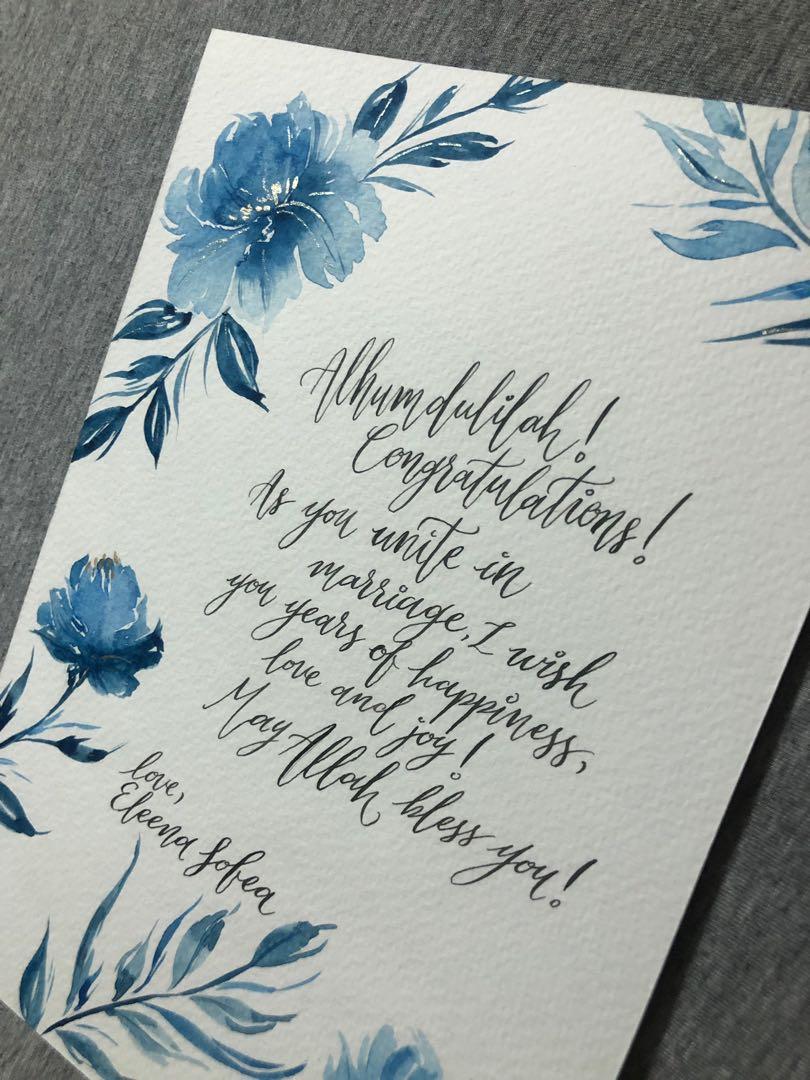 Alhumdulilah!
Congratulations!
As you unite in
marriage, I wish
you years of happiness,
love and joy!
May Allah bless you!
love,
Eleena Sofea